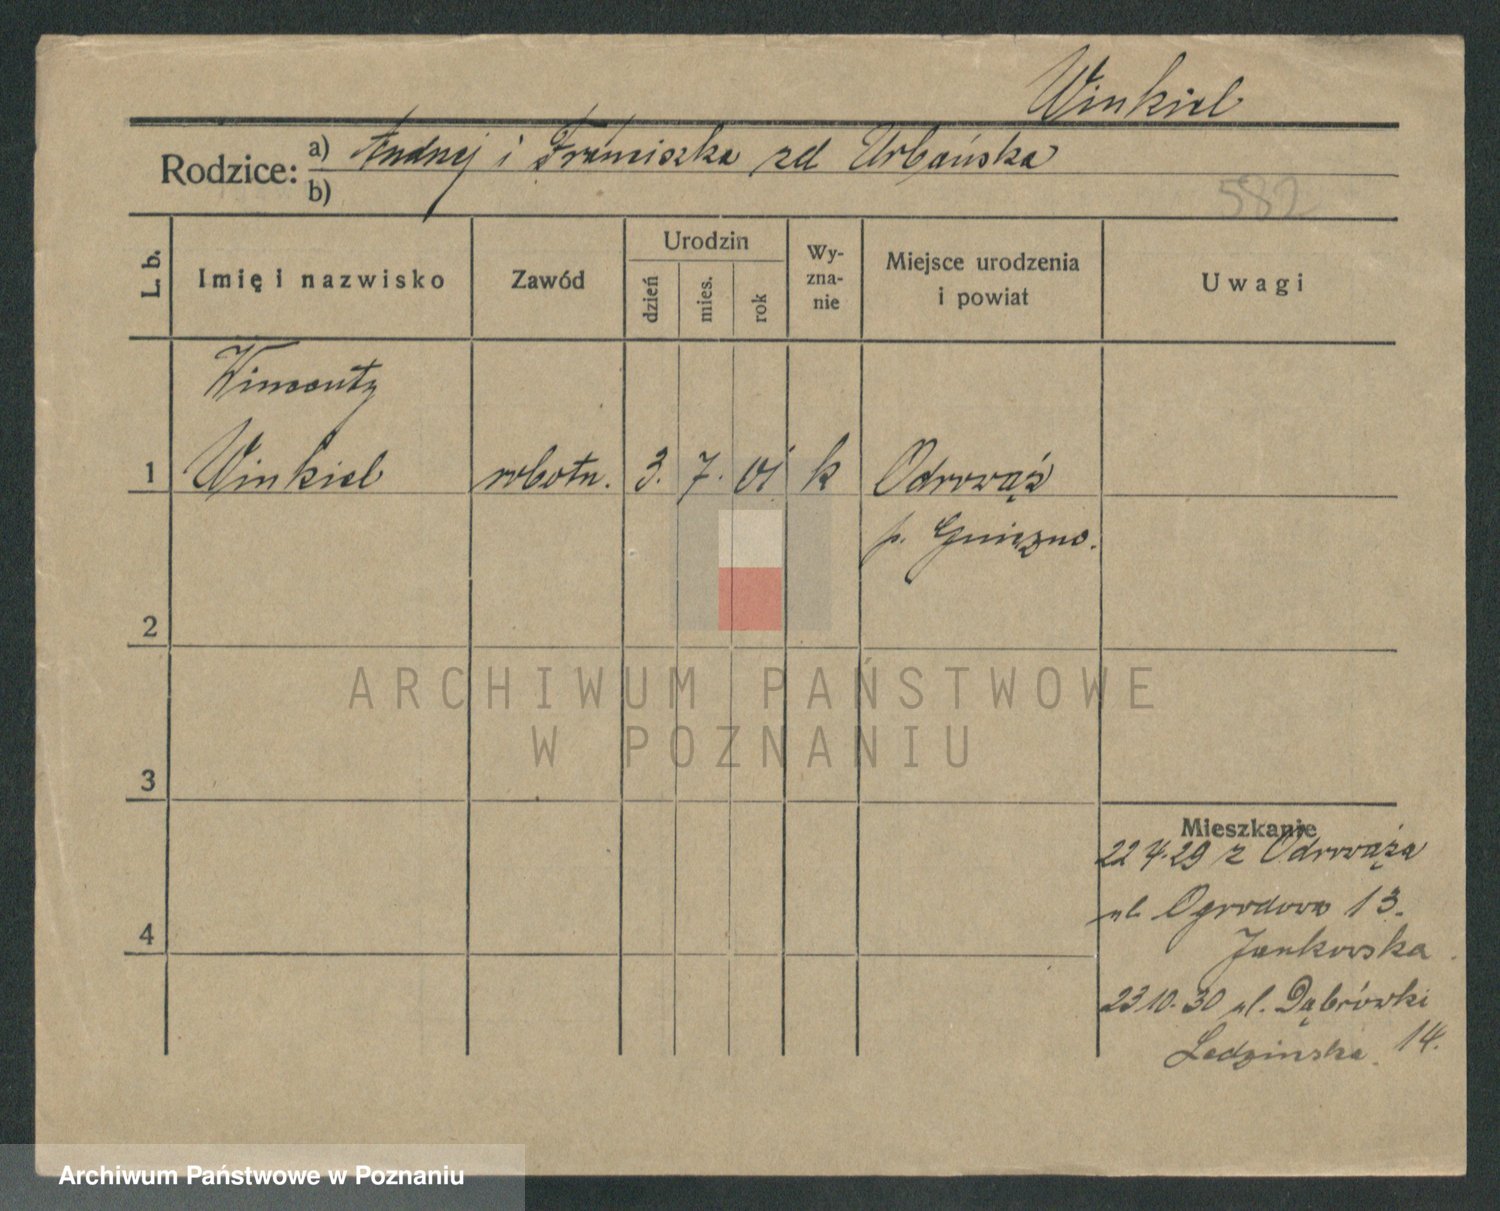 Winkiel
Rodzice: a) Andrzej i Franciszka zd Urbańska
b)
582
L. b.
Imię i nazwisko
Zawód
Urodzin
dzień
mies.
rok
Wy-
zna-
nie
Miejsce urodzenia
i powiat
Uwagi
Wincenty
1 Winkiel robotn. 3. 7. 01 k Odrowąż
p. Gniezno.
2
ARCHIWUM PAŃSTWOWE
W POZNANIU
3
Mieszkanie
22 4.29 z Odrowąża
ul. Ogrodowa 13.
4
Jankowska
23 10.30 ul. Dąbrówki
14.
Ledzińska
Archiwum Państwowe w Poznaniu